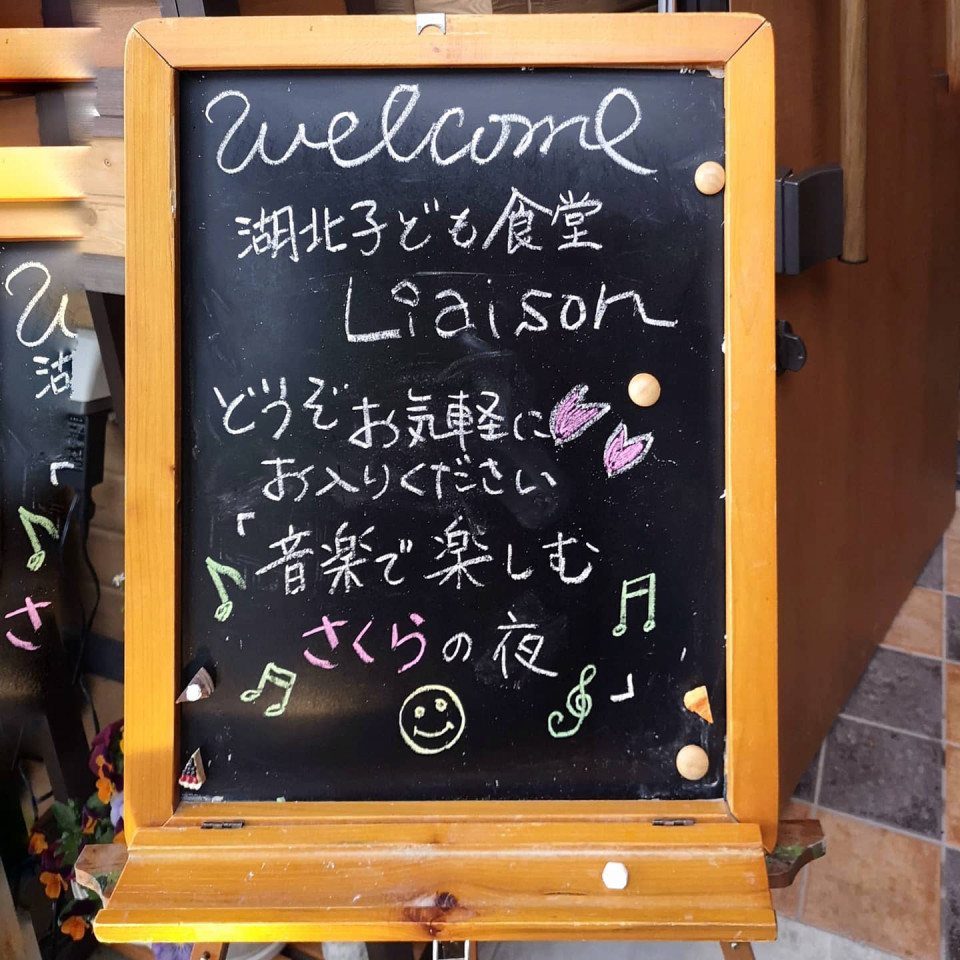 Welcome
湖北子ども食堂
Liaison
どうぞお気軽に
お入りください
「音楽で楽しむ
さくらの夜」